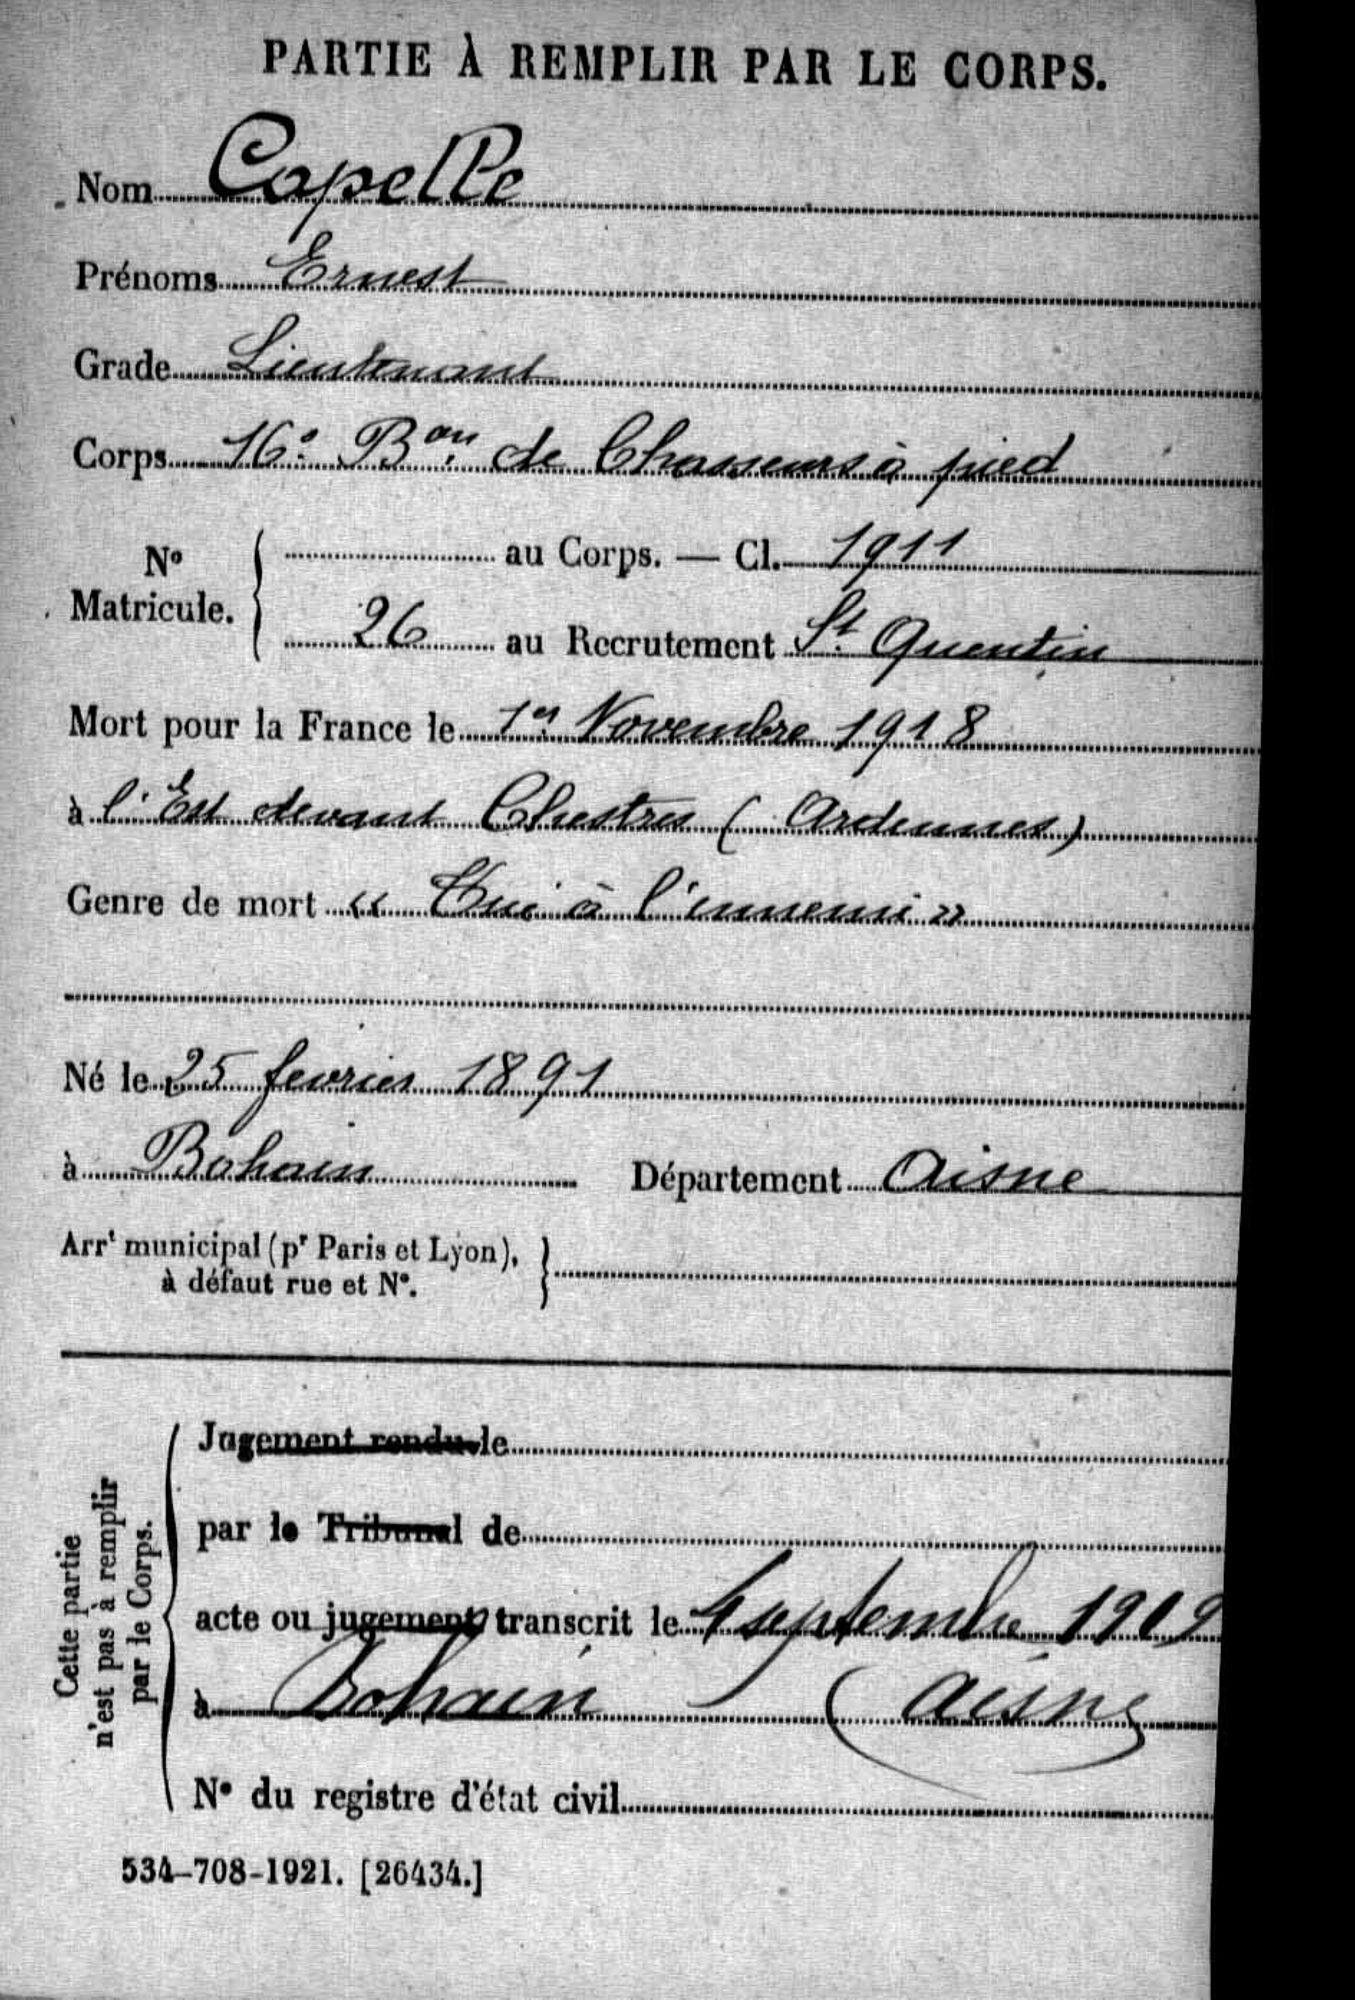 PARTIE À REMPLIR PAR LE CORPS.
Nom Capelle
Prénoms Ernest
Grade Lieutenant
Corps 16e Bon de Chasseurs à pied
No Matricule. { au Corps. — Cl. 1911
26 au Recrutement St Quentin
Mort pour la France le 1er Novembre 1918
à l'Est devant Chestres (Ardennes)
Genre de mort « Tué à l'ennemi »
Né le 25 fevrier 1891
à Bohain Département Aisne
Arrt municipal (pr Paris et Lyon), à défaut rue et No. }
Cette partie n'est pas à remplir par le Corps.
Jugement rendu le
par le Tribunal de
acte ou jugement transcrit le 4 septembre 1919
à Bohain (Aisne
No du registre d'état civil
534-708-1921. [26434.]